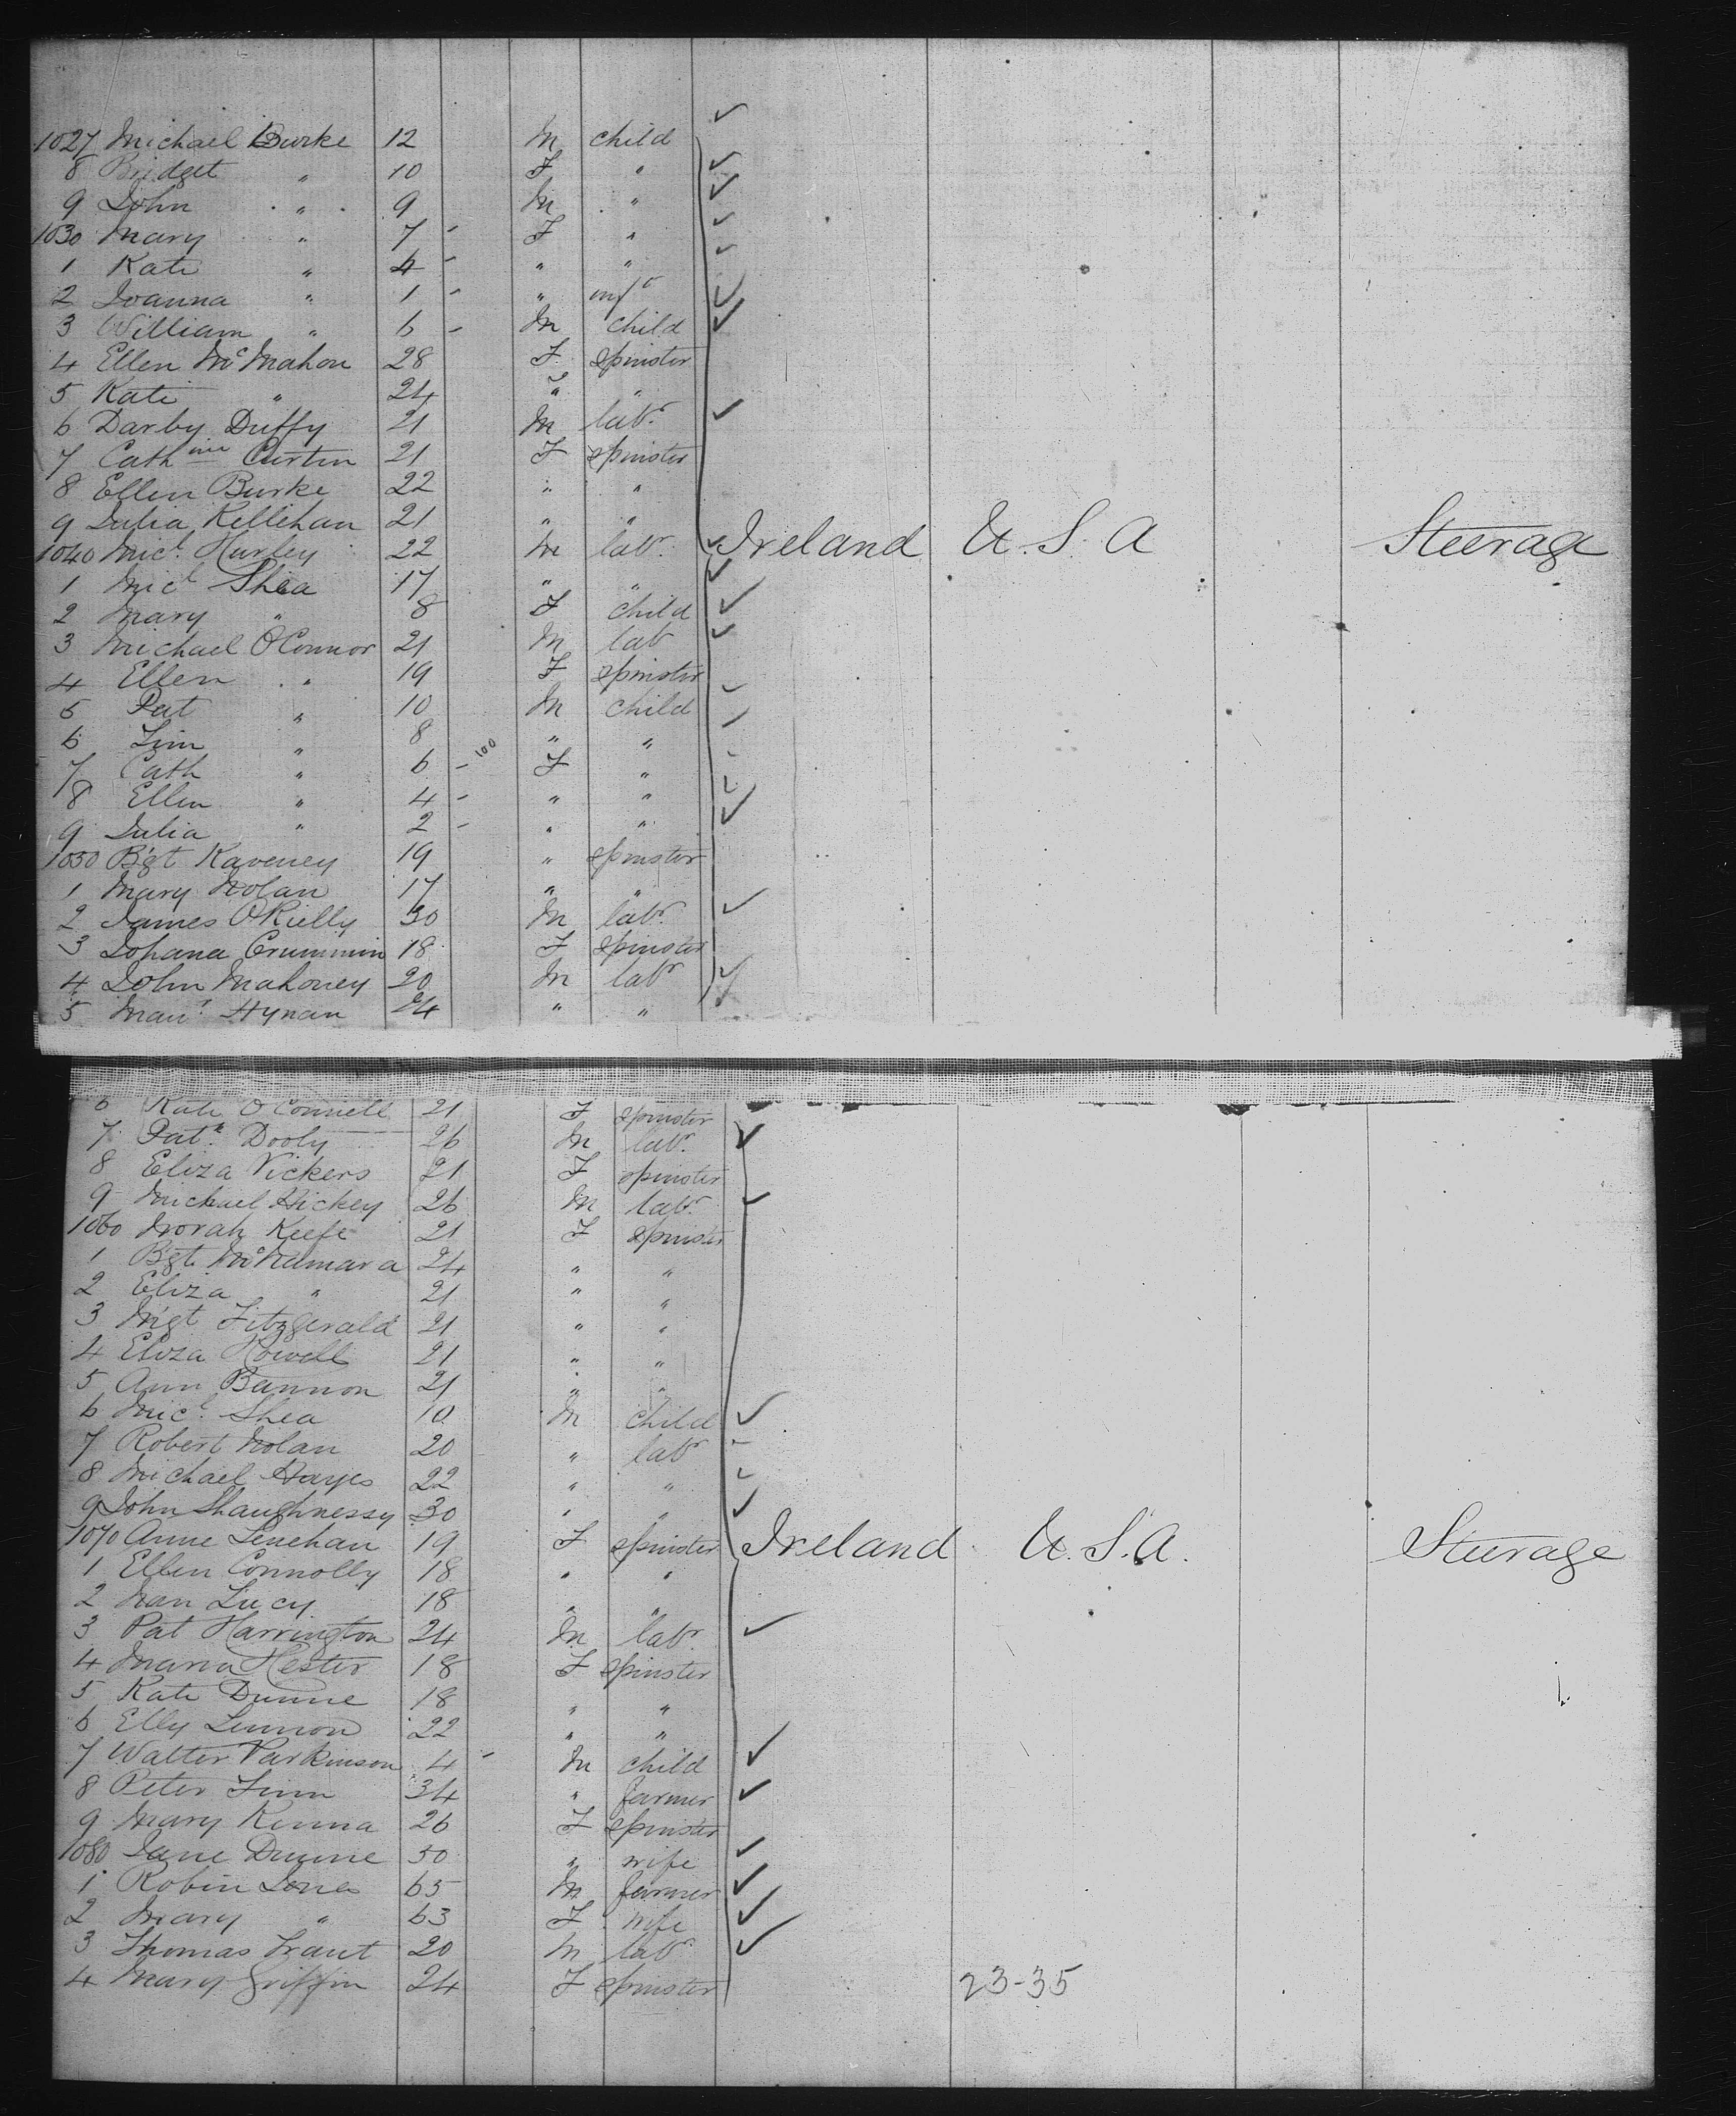 1027 Michael Burke 12 M child
8 Bridget " 10 F "
9 John " 9 M "
1030 Mary " 7 - F "
1 Kate " 4 - " "
2 Joanna " 1 - " inft
3 William " 6 - M child
4 Ellen McMahon 28 F spinster
5 Kate " 24 F " "
6 Darby Duffy 21 M labr
7 Cathine Curtin 21 F spinster
8 Ellen Burke 22 " "
9 Julia Kellehan 21 " "
1040 Micl Hurley 22 M labr Ireland U.S.A Steerage
1 Micl Shea 17 " "
2 Mary " 8 F child
3 Michael O'Connor 21 M labr
4 Ellen " 19 F spinster
5 Pat " 10 M child
6 Jim " 8 " "
7 Cath " 6 - 100 F "
8 Ellen " 4 - " "
9 Julia " 2 - " "
1050 Bgt Kaveney 19 " spinster
1 Mary Nolan 17 " "
2 James O'Rielly 30 M labr
3 Johana Crummin 18 F spinster
4 John Mahoney 20 M labr
5 Maur Hynan 24 " "
6 Kate O'Connell 21 F spinster
7 Patk Dooly 26 M labr
8 Eliza Vickers 21 F spinster
9 Michael Hickey 26 M labr
1060 Norah Keefe 21 F spinster
1 Bgt McNamara 24 " "
2 Eliza " 21 " "
3 Mgt Fitzgerald 21 " "
4 Eliza Howell 21 " "
5 Ann Bannon 21 " "
6 Micl Shea 10 M child
7 Robert Nolan 20 " labr
8 Michael Hayes 22 " "
9 John Shaughnessy 30 " "
1070 Anne Lenehan 19 F spinster Ireland U.S.A. Steerage
1 Ellen Connolly 18 " "
2 Nan Lucy 18 " "
3 Pat Harrington 24 M labr
4 Maria Hester 18 F spinster
5 Kate Dunne 18 " "
6 Elly Lennon 22 " "
7 Walter Parkinson 4 - M child
8 Peter Finn 34 " farmer
9 Mary Kenna 26 F spinster
1080 Jane Dunne 50 " wife
1 Robin Jones 65 M farmer
2 Mary " 63 F wife
3 Thomas Trant 20 M labr
4 Mary Griffin 24 F spinster 23-35